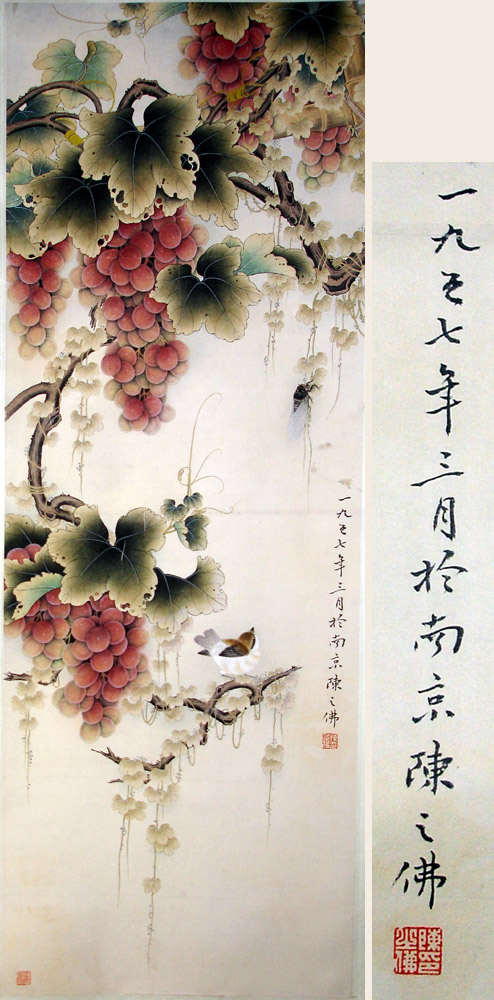 一九五七年三月於南京陳之佛
一九五七年三月於南京陳之佛
陳印之佛